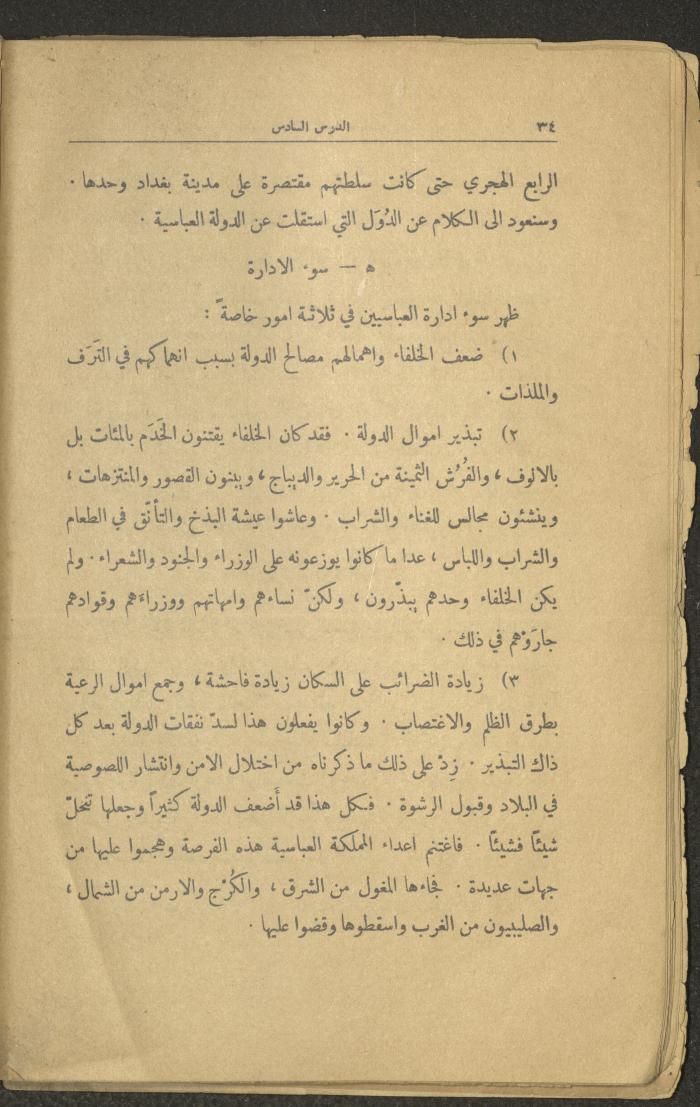 ٣٤ الدرس السادس
الرابع الهجري حتى كانت سلطتهم مقتصرة على مدينة بغداد وحدها ٠
وسنعود الى الكلام عن الدُوَل التي استقلت عن الدولة العباسية ٠
ه — سوء الادارة
ظهر سوء ادارة العباسيين في ثلاثة امور خاصةً :
١) ضعف الخلفاء واهمالهم مصالح الدولة بسبب انهماكهم في التَرَف
والملذات ٠
٢) تبذير اموال الدولة ٠ فقد كان الخلفاء يقتنون الخَدَم بالمئات بل
بالالوف ، والفُرُش الثمينة من الحرير والديباج ، ويبنون القصور والمنتزهات ،
وينشئون مجالس للغناء والشراب ٠ وعاشوا عيشة البذخ والتأنّق في الطعام
والشراب واللباس ، عدا ما كانوا يوزعونه على الوزراء والجنود والشعراء ٠ ولم
يكن الخلفاء وحدهم يبذّرون ، ولكنّ نساءهم وامهاتهم ووزراءَهم وقوادهم
جارَوْهم في ذلك ٠
٣) زيادة الضرائب على السكان زيادة فاحشة ، وجمع اموال الرعية
بطرق الظلم والاغتصاب ٠ وكانوا يفعلون هذا لسدّ نفقات الدولة بعد كل
ذاك التبذير ٠ زِدْ على ذلك ما ذكرناه من اختلال الامن وانتشار اللصوصية
في البلاد وقبول الرشوة ٠ فكل هذا قد أَضعف الدولة كثيراً وجعلها تنحلّ
شيئاً فشيئاً ٠ فاغتنم اعداء المملكة العباسية هذه الفرصة وهجموا عليها من
جهات عديدة ٠ فجاءها المغول من الشرق ، والكُرْج والارمن من الشمال ،
والصليبيون من الغرب واسقطوها وقضوا عليها ٠